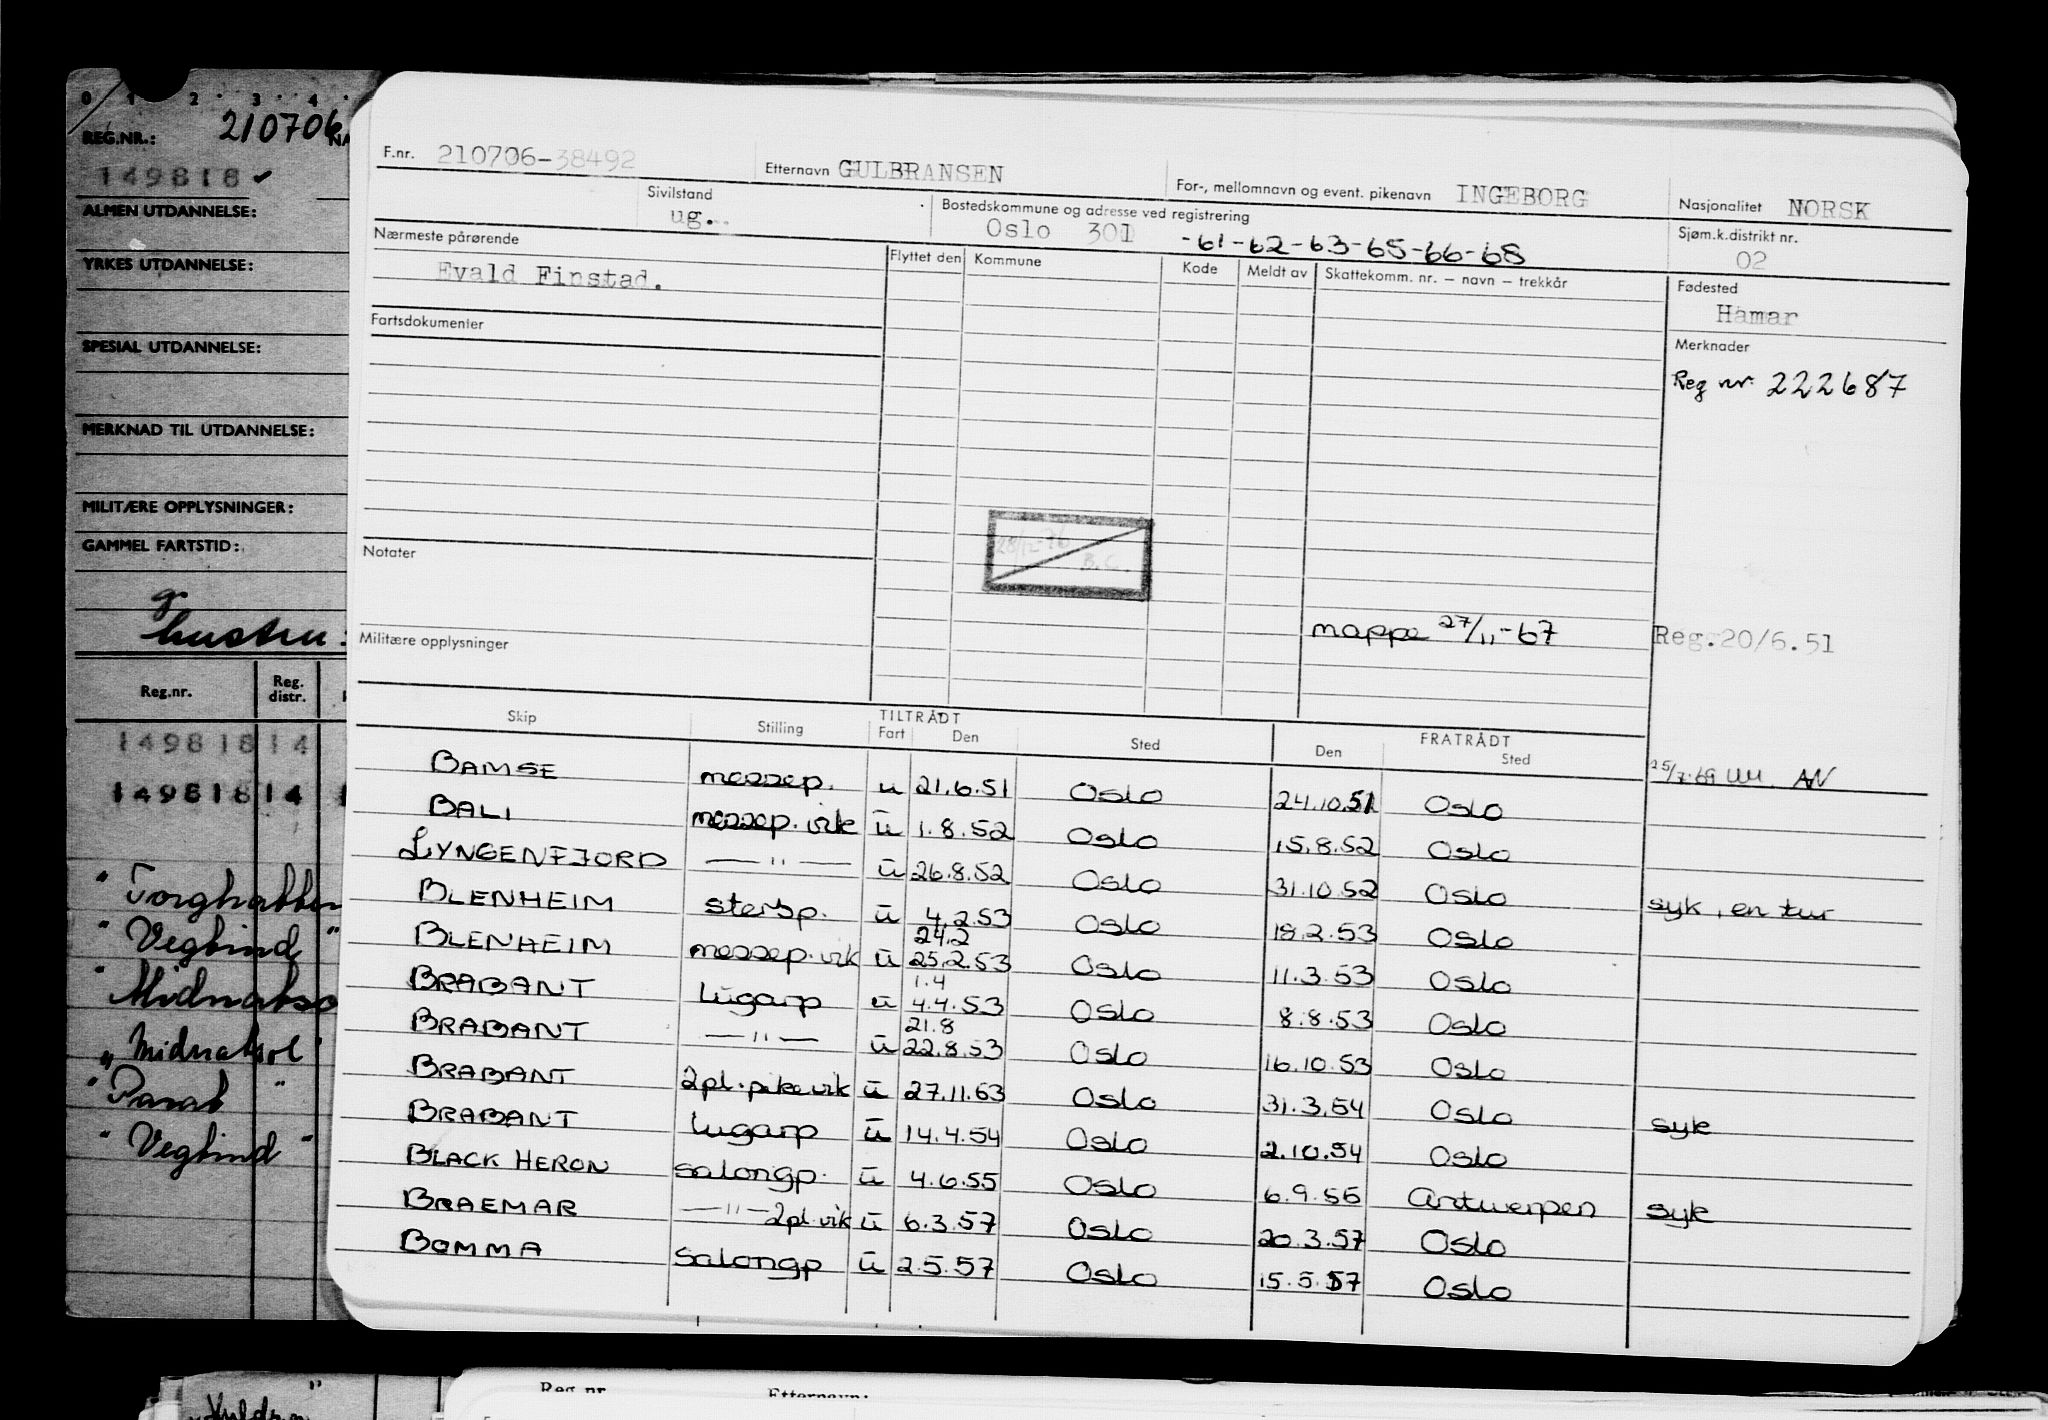 0 1 2 3 4
REG.NR.: 210706 NA
149818 ✓
ALMEN UTDANNELSE:
YRKES UTDANNELSE:
SPESIAL UTDANNELSE:
MERKNAD TIL UTDANNELSE:
MILITÆRE OPPLYSNINGER:
GAMMEL FARTSTID:
g.
hustru:
Reg.nr. Reg. distr.
149818 14
149818 14
" Torghatten
" Vegtind "
" Midnatso
„ Midnatsol "
" Parat "
" Vegtind "
F.nr. 210706-38492 Etternavn GULBRANSEN For-, mellomnavn og event. pikenavn INGEBORG Nasjonalitet NORSK
Sivilstand ug. Bostedskommune og adresse ved registrering Oslo 301 -61-62-63-65-66-68 Sjøm.k.distrikt nr. 02
Nærmeste pårørende Flyttet den Kommune Kode Meldt av Skattekomm. nr. – navn – trekkår Fødested
Evald Finstad. Hamar
Fartsdokumenter Merknader
Reg nr. 222687
28/12-76 B.C.
Notater
mappe 27/11-67 Reg.20/6.51
Militære opplysninger
Skip Stilling TILTRÅDT Fart Den Sted FRATRÅDT Den Sted
25/7.69 UU. AN
BAMSE messep. u 21.6.51 Oslo 24.10.51 Oslo
BALI messep.vik u 1.8.52 Oslo 15.8.52 Oslo
LYNGENFJORD —"— u 26.8.52 Oslo 31.10.52 Oslo syk, en tur
BLENHEIM stersp. u 4.2.53 Oslo 18.2.53 Oslo
24.2
BLENHEIM messep.vik u 25.2.53 Oslo 11.3.53 Oslo
1.4
BRABANT Lugarp u 4.4.53 Oslo 8.8.53 Oslo
21.8
BRABANT —"— u 22.8.53 Oslo 16.10.53 Oslo
BRABANT 2pl.pike vik u 27.11.63 Oslo 31.3.54 Oslo syk
BRABANT Lugarp u 14.4.54 Oslo 2.10.54 Oslo
BLACK HERON salongp. u 4.6.55 Oslo 6.9.56 Antwerpen syk
BRAEMAR —"— 2pl.vik u 6.3.57 Oslo 20.3.57 Oslo
BOMMA salongp u 2.5.57 Oslo 15.5.57 Oslo
Reg.nr. Etternavn: